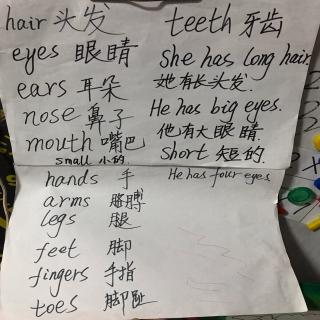 hair 头发
eyes 眼睛
ears 耳朵
nose 鼻子
mouth 嘴巴
small 小的.
hands 手
arms 胳膊
legs 腿
feet 脚
fingers 手指
toes 脚趾
teeth 牙齿
She has long hair.
她有长头发.
He has big eyes.
他有大眼睛.
Short 短的.
He has four eyes